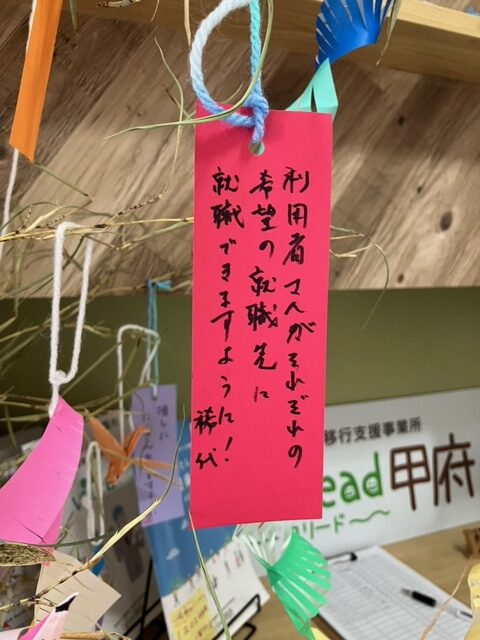 利用者さんがそれぞれの
希望の就職先に
就職できますように!
稀代
移行支援事業所
ead 甲府
リード